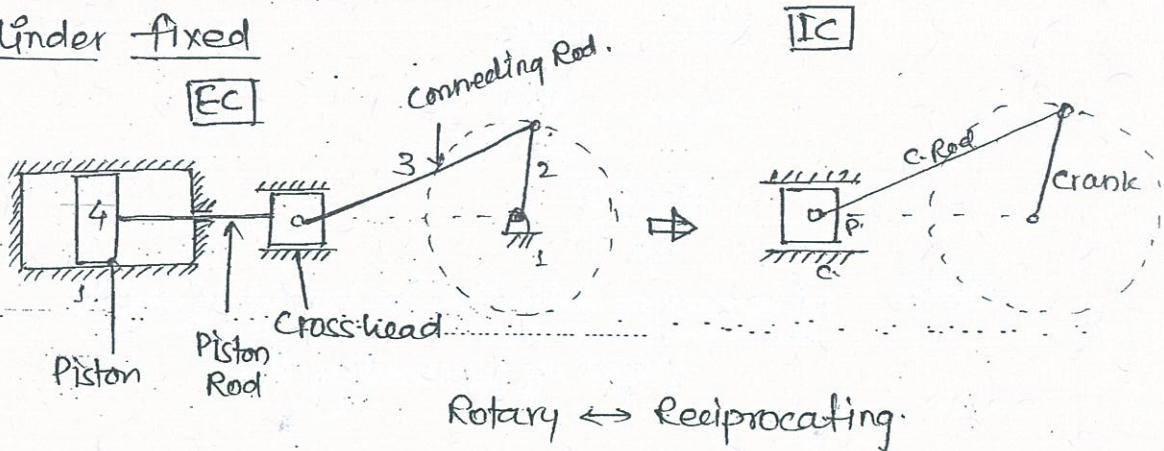 linder fixed
EC
IC
Connecting Rod.
3
2
4
1
1.
Piston
Piston
Rod
Cross-head
C-Rod
Crank
P.
C.
Rotary ↔ Reciprocating.